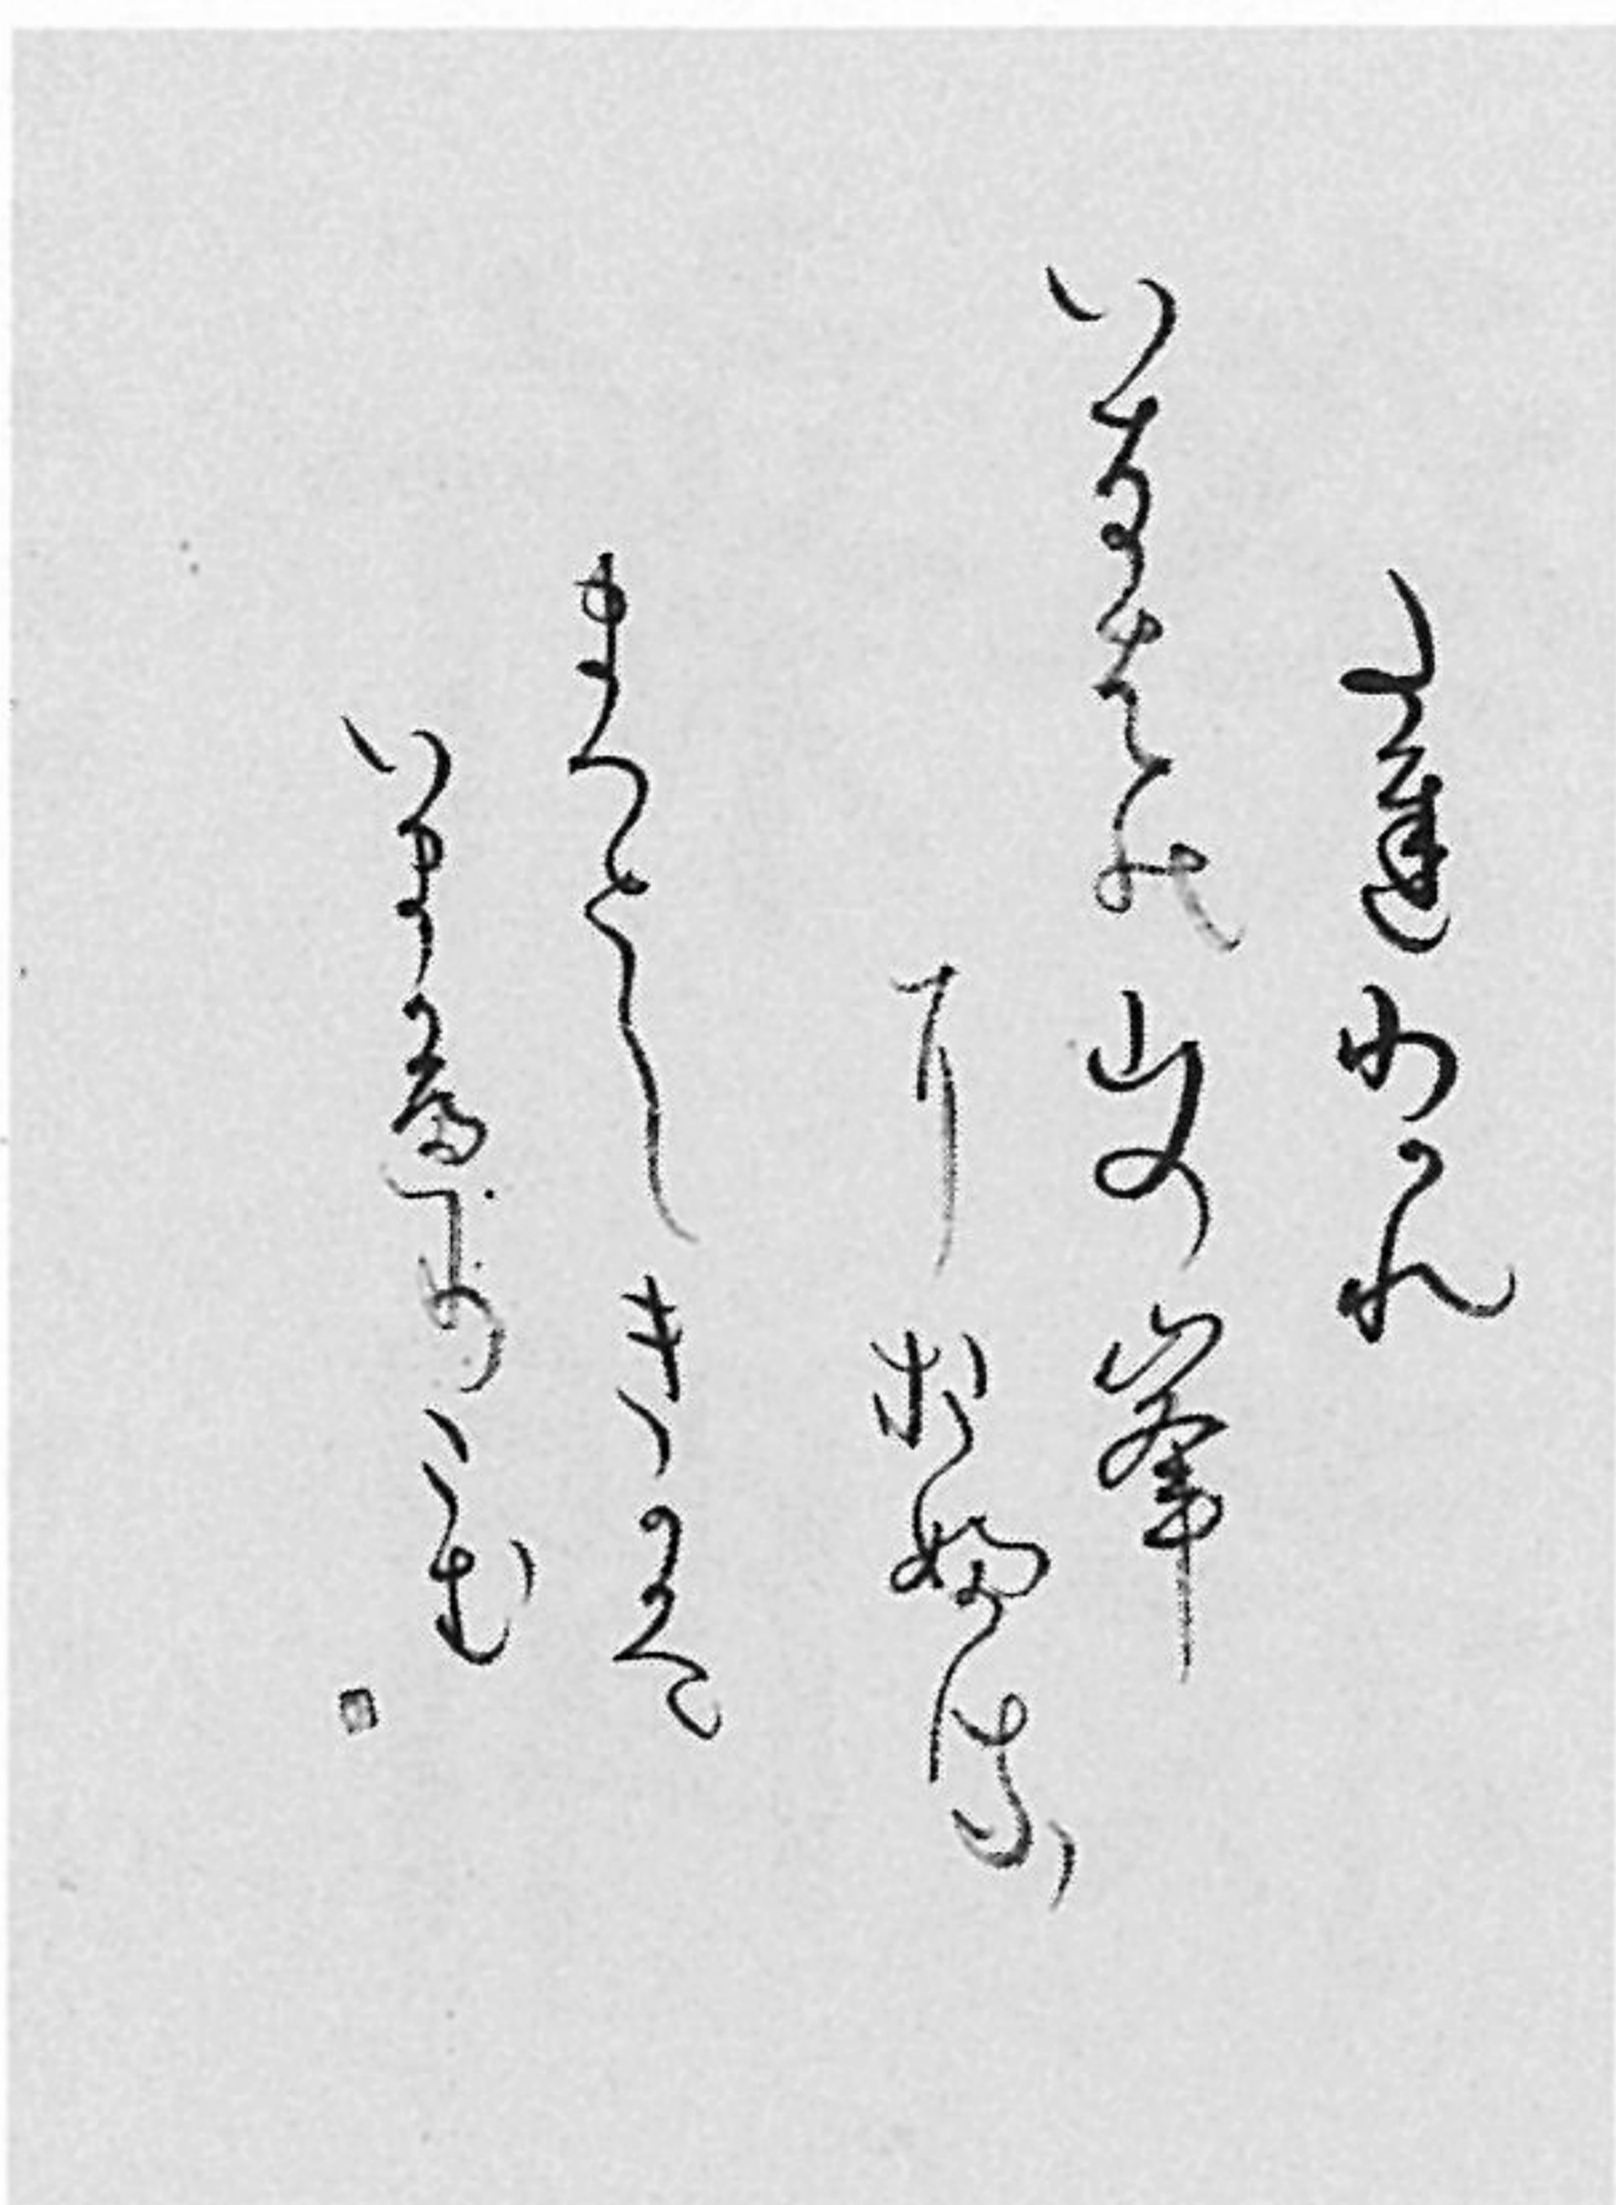 たちわかれ
いなはの山の峯
におふる
まつとしきかは
いまかへりこむ